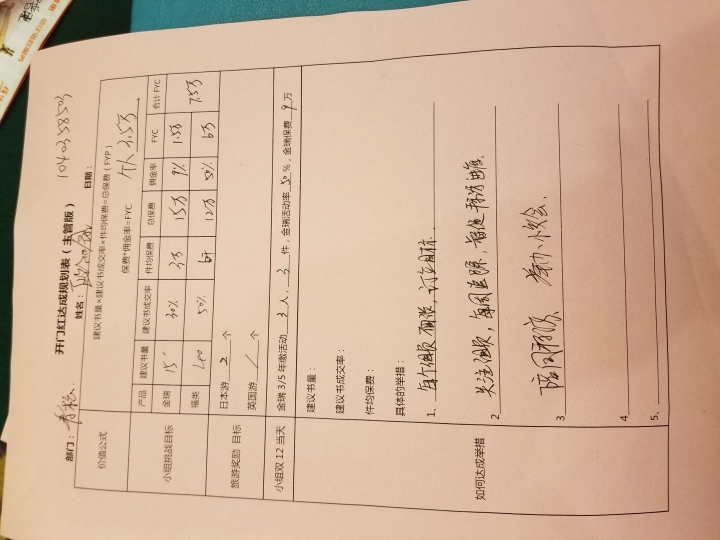 开门红达成规划表（主管版） 1040358503
部门： 姓名： 日期：
价值公式
建议书量×建议书成交率×件均保费=总保费（FYP）
保费*佣金率=FYC 个人 3.5万
小组挑战目标
产品 建议书量 建议书成交率 件均保费 总保费 佣金率 FYC 合计FYC
金瑞 15 30% 3万 15万 9% 1.5万 7.5万
福类 200 50% 6千 12万 50% 6万
旅游奖励 目标
日本游 2 个
英国游 / 个
小组双 12 当天 金瑞 3/5 年缴活动 3 人，3 件，金瑞活动率 50 %，金瑞保费 9 万
如何达成举措
建议书量：
建议书成交率：
件均保费：
具体的举措：
1、每个组员面谈，订立目标.
2 关注组员，每周追踪，督促拜访进度.
3 陪同 拜访、举办小组会.
4
5、